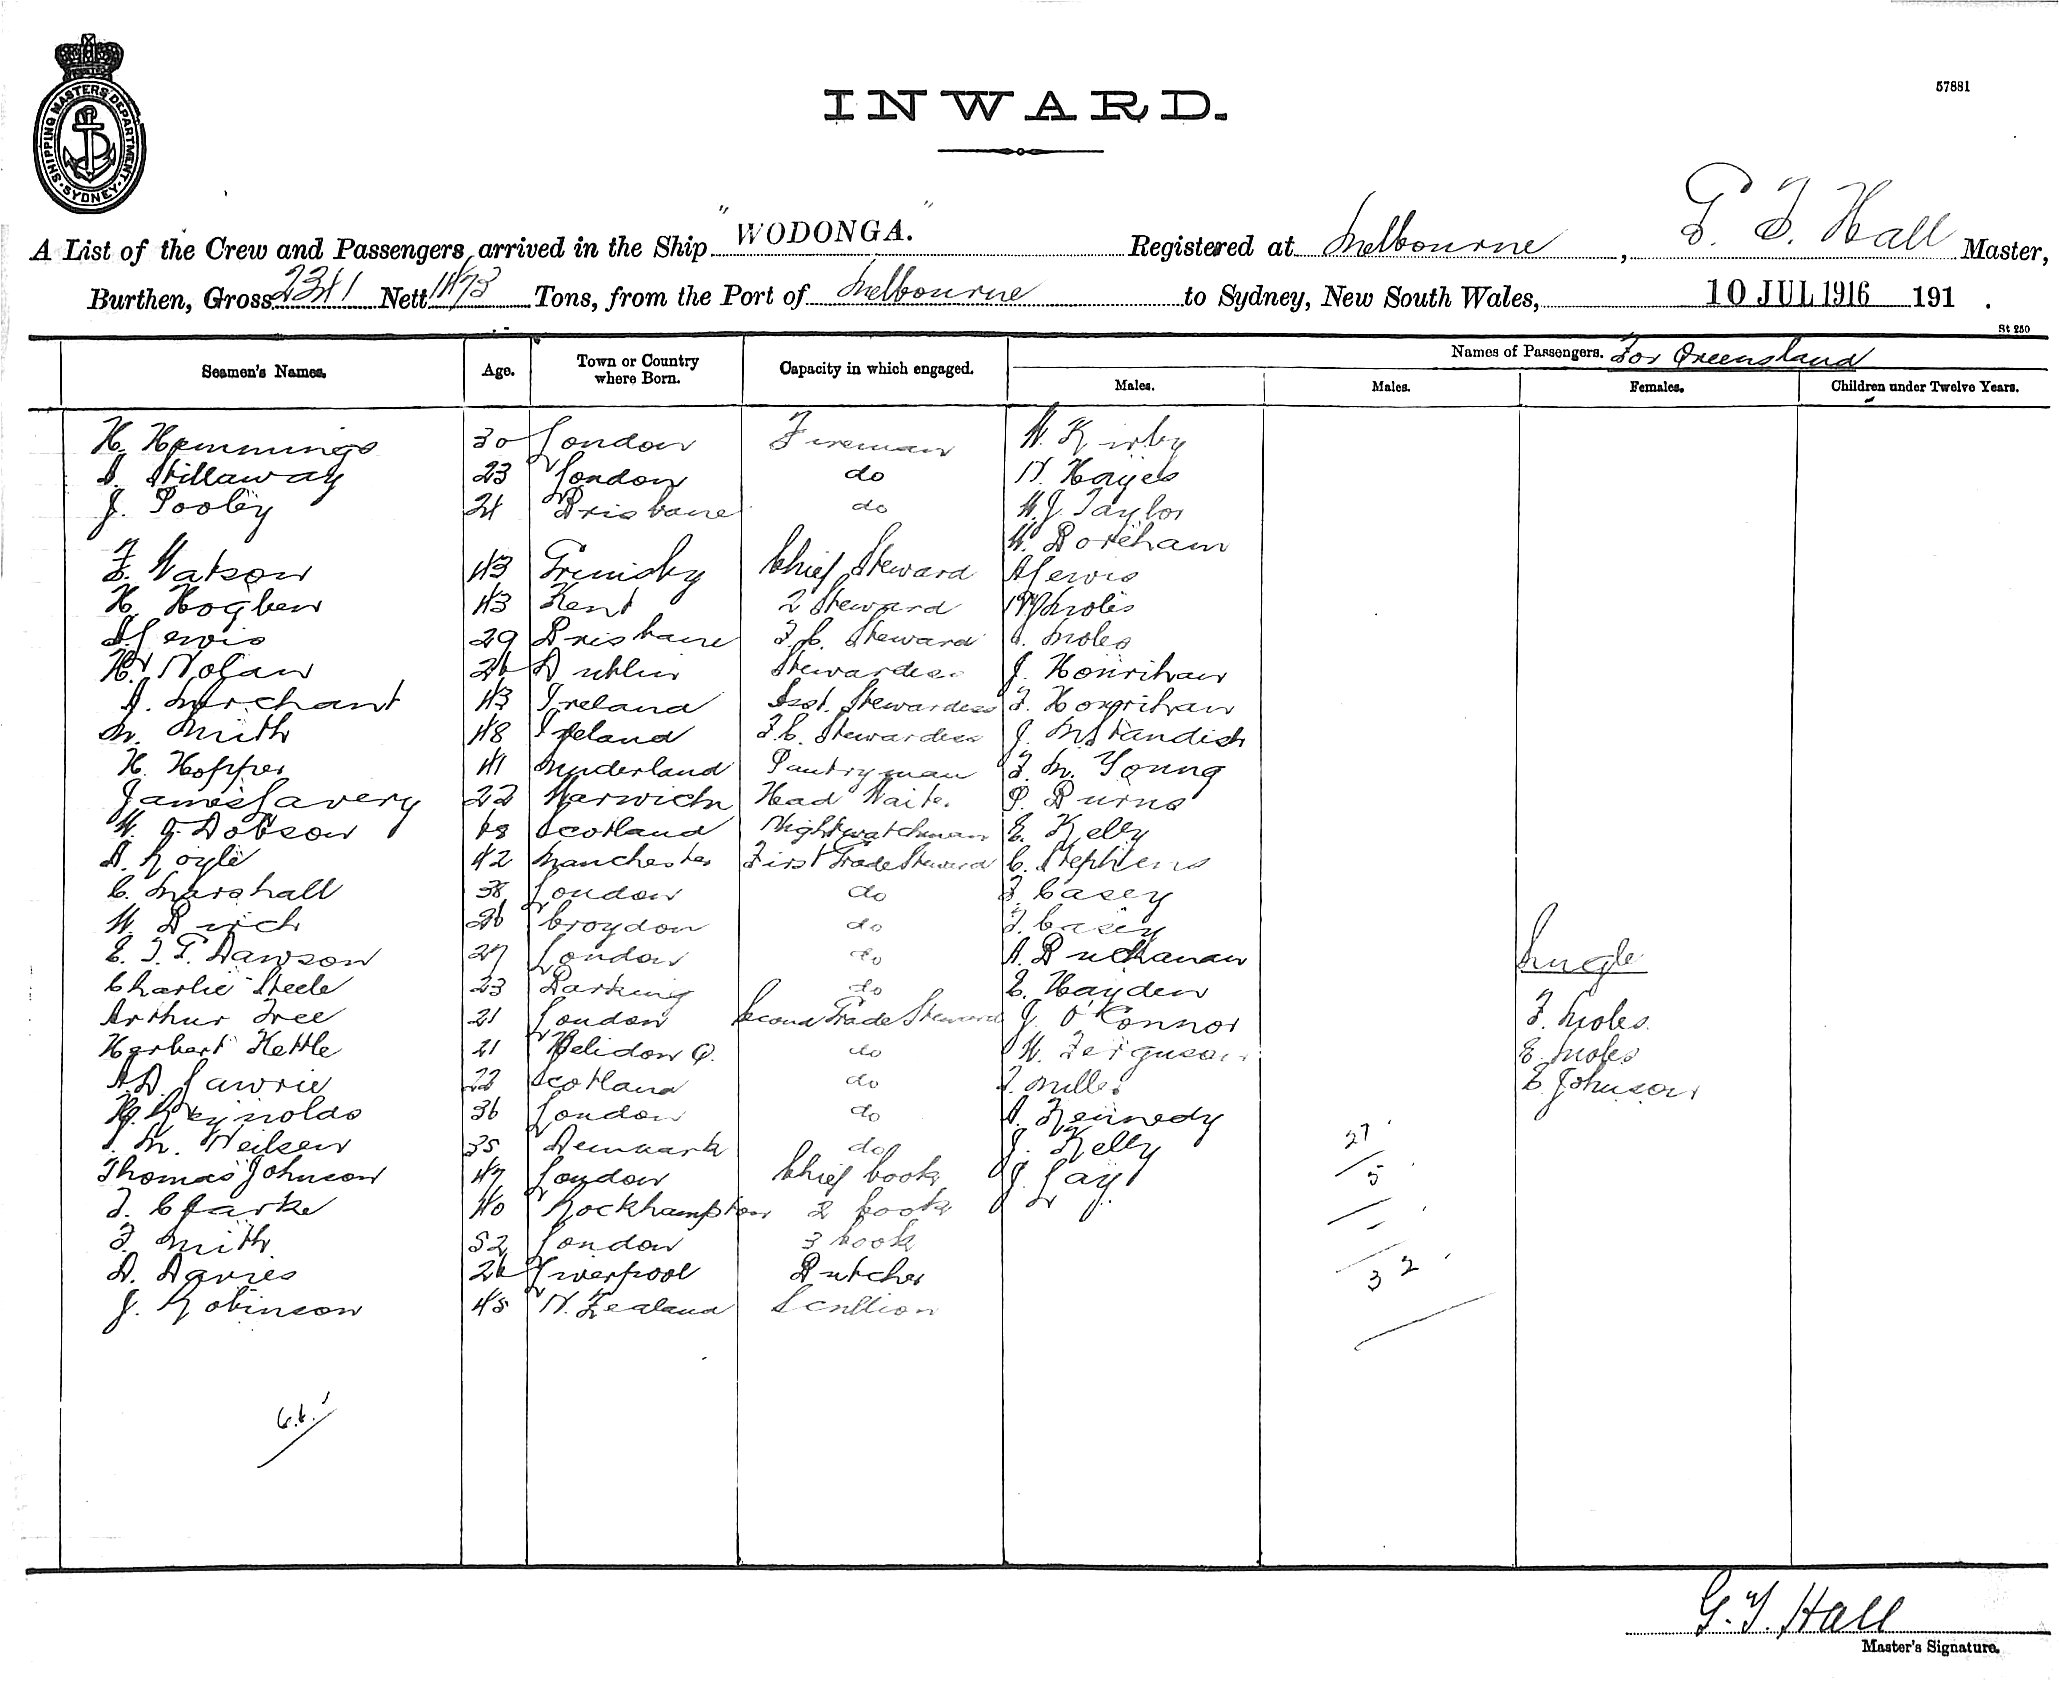 INWARD.
57881
SHIPPING MASTERS DEPARTMENT
SYDNEY
A List of the Crew and Passengers arrived in the Ship "WODONGA." Registered at Melbourne, G. T. Hall Master,
Burthen, Gross 2341 Nett 1473 Tons, from the Port of Melbourne to Sydney, New South Wales, 10 JUL 1916 191 .
St 250
Seamen's Names. Age. Town or Country where Born. Capacity in which engaged. Names of Passengers. For Queensland
Males. Males. Females. Children under Twelve Years.
H. Hemmings 30 London Fireman W. Kirby
A. Stillaway 23 London do N. Hayes
J. Pooley 21 Brisbane do W. J. Taylor
W. Boreham
F. Watson 43 Grimsby Chief Steward A Lewis
H. Hogben 43 Kent 2 Steward Moles
A Lewis 29 Brisbane F. C. Steward Moles
H. Nolan 26 Dublin Stewardess J. Hourihan
A. Merchant 43 Ireland Asst. Stewardess F. Hourihan
M. Smith 48 Ireland F. C. Stewardess J. M Standish
H. Hopper 41 Sunderland Pantryman F. M. Young
James Lavery 22 Harwich Head Waiter P. Burns
W. G. Dobson 68 Scotland Nightwatchman E. Kelly
A. Royle 42 Manchester First Grade Steward C. Stephens
C. Marshall 38 London do F. Casey
W. Birch 26 Croydon do F. Casey
E. T. G. Dawson 27 London do A. Buchanan Single
Charlie Steele 23 Barking do E. Hayden
Arthur Tree 21 London Second Grade Steward J. O'Connor F. Moles
Herbert Kettle 21 Helidon Q. do W. Ferguson E. Moles
A. D. Lawrie 22 Scotland do F. Miller E Johnson
Reynolds 36 London do A. Kennedy
M. Neilsen 35 Denmark do J. Kelly 27
Thomas Johnson 47 London Chief Cook J. Gay 5
F. Clarke 40 Rockhampton 2 Cook
F. Smith 52 London 3 Cook
A. Davies 26 Liverpool Butcher 32
J. Robinson 45 N. Zealand Scullion
G. T. Hall
Master's Signature.